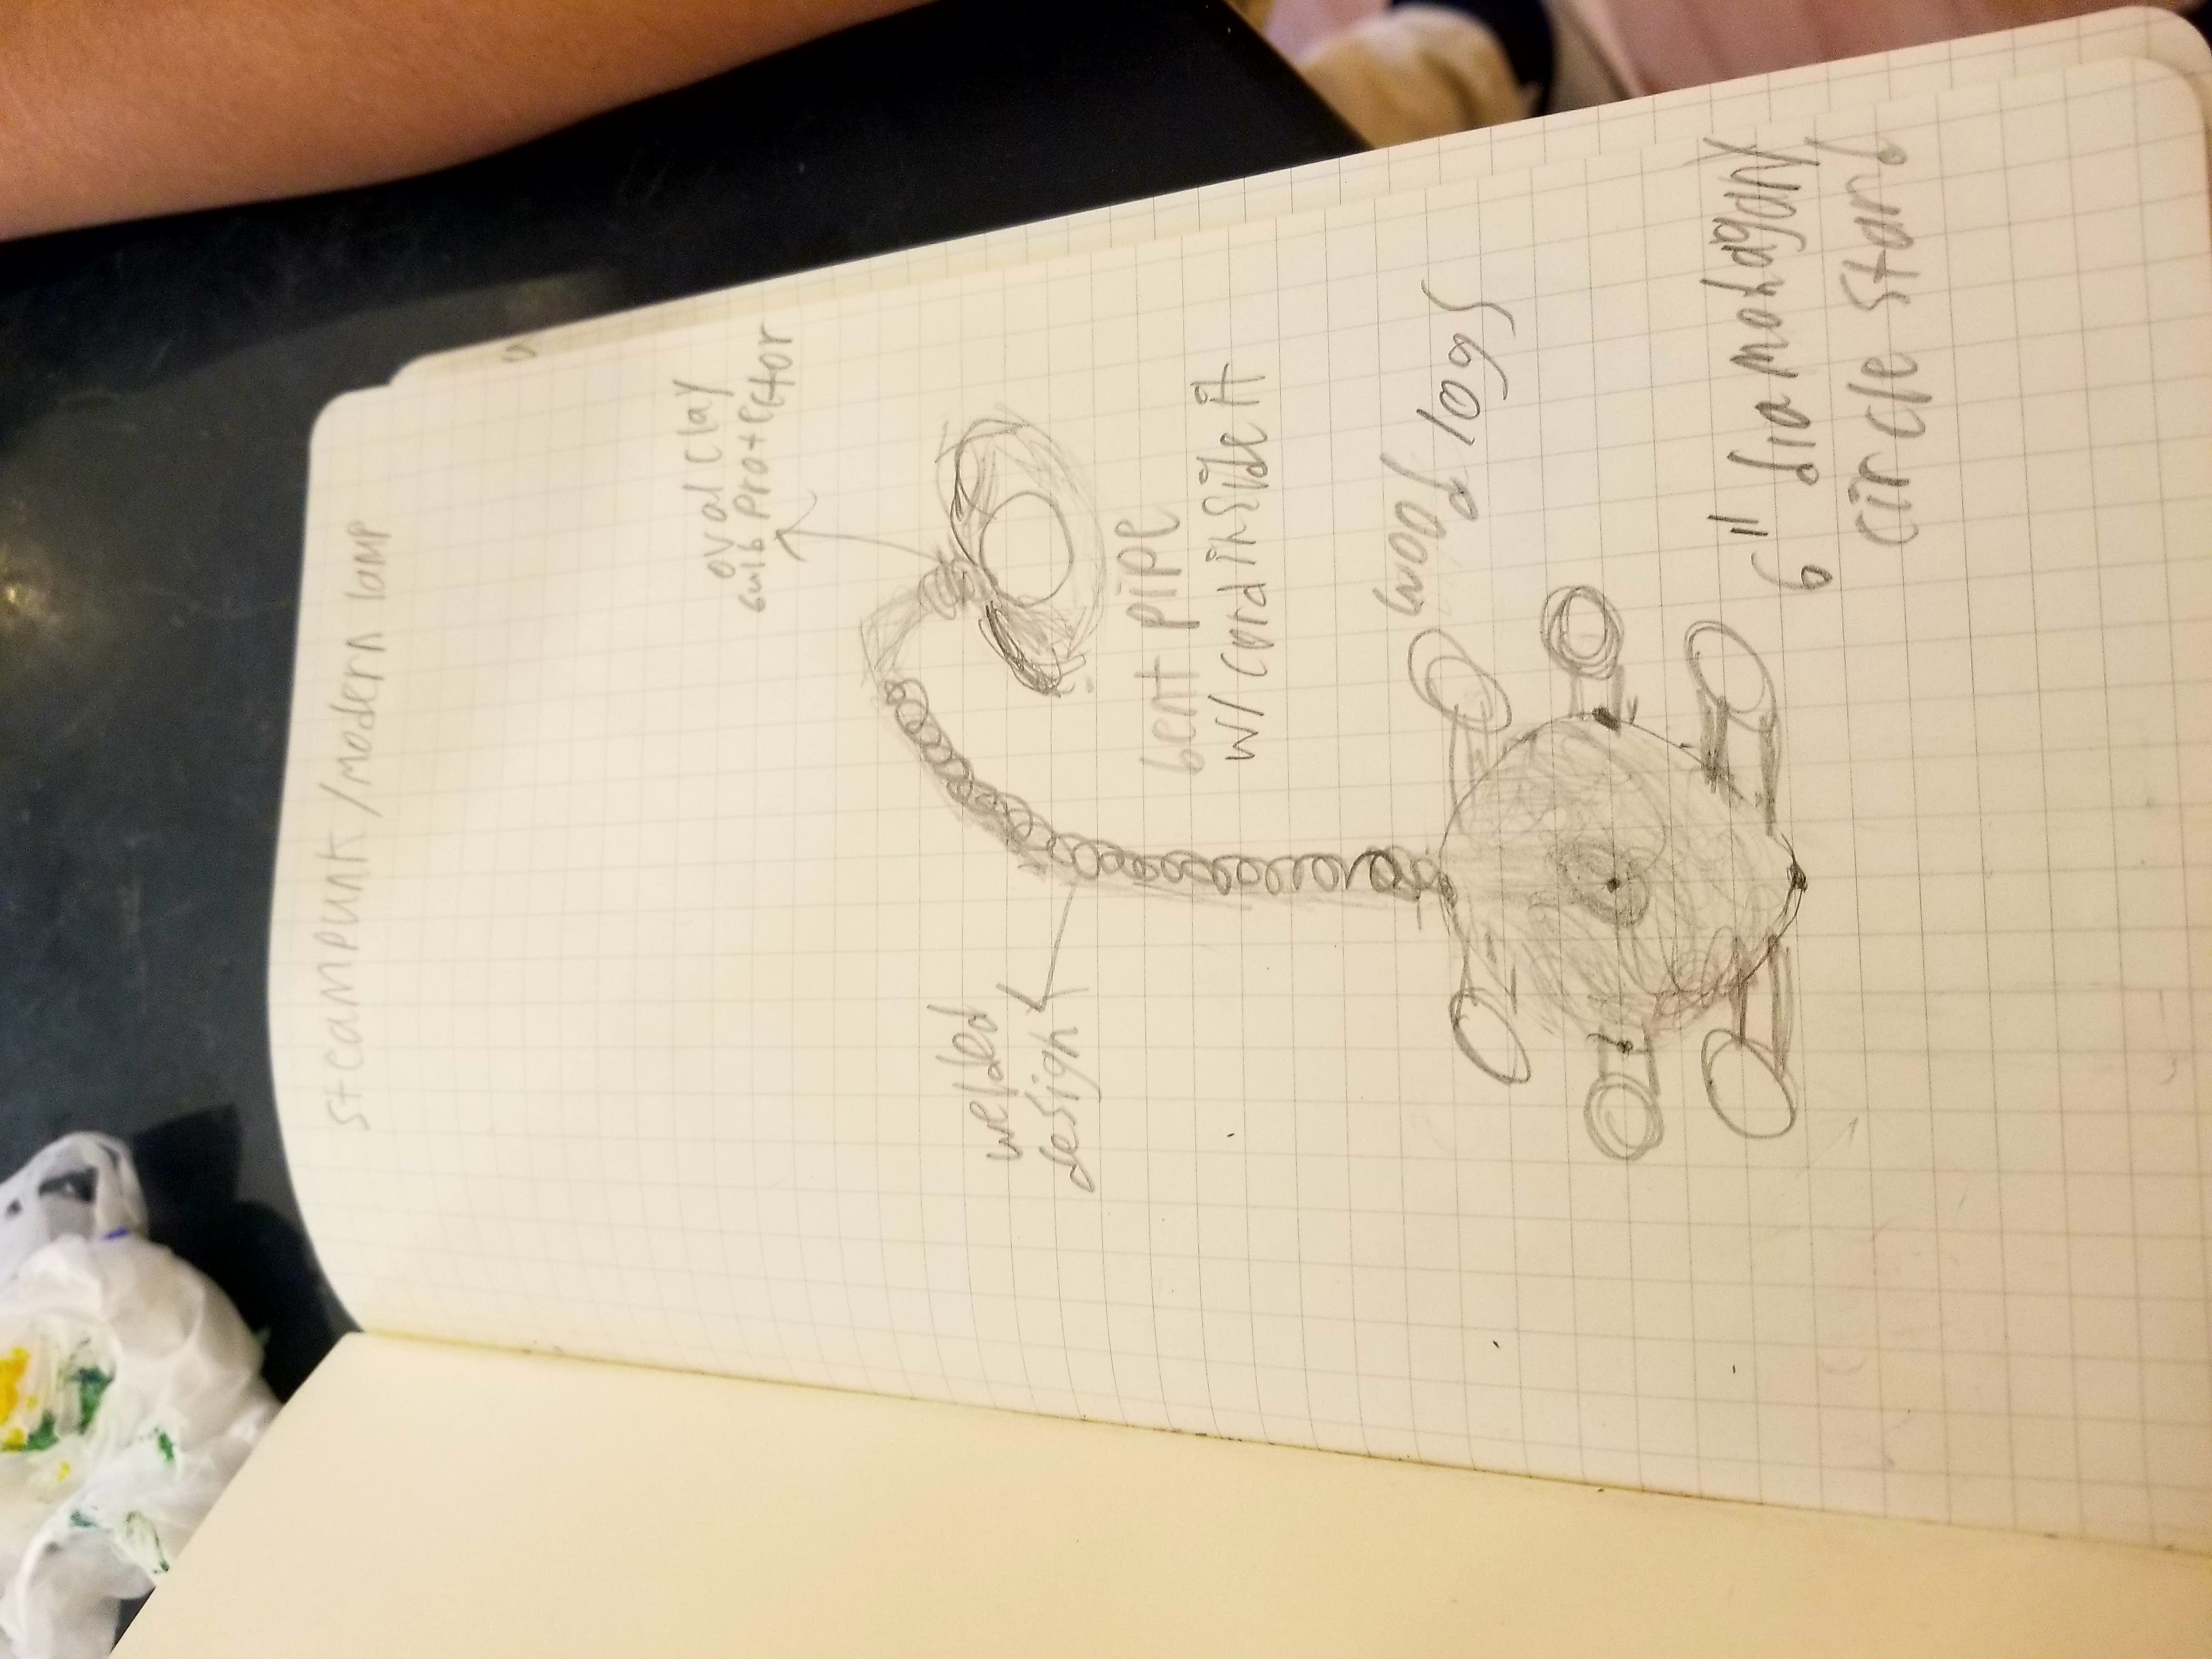 steampunk / modern lamp
oval clay
bulb protector
welded
design
bent pipe
w/ cord inside it
wood logs
6" dia mohagany
circle stand